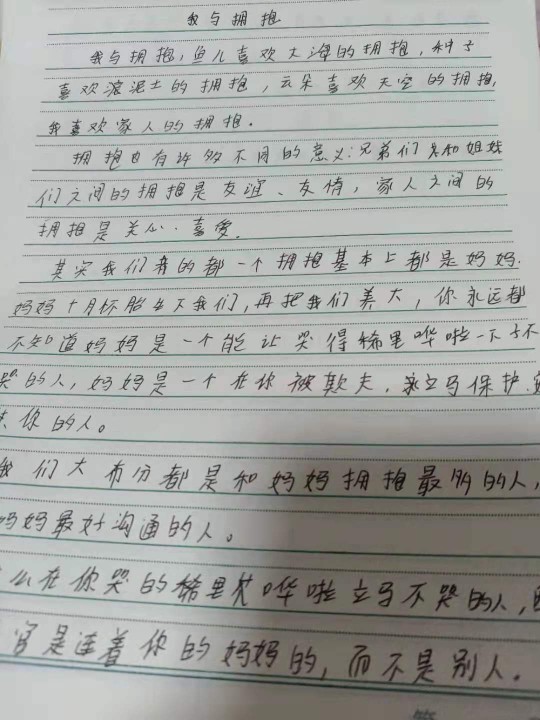 我与拥抱
我与拥抱,鱼儿喜欢大海的拥抱,种子
喜欢滚泥土的拥抱,云朵喜欢天空的拥抱,
我喜欢家人的拥抱。
拥抱也有许多不同的意义:兄弟们和姐妹
们之间的拥抱是友谊、友情,家人之间的
拥抱是关心、喜爱。
其实我们的都一个拥抱基本上都是妈妈.
妈妈十月怀胎生下我们,再把我们养大,你永远都
不知道妈妈是一个能让哭得稀里哗啦一下子不
哭的人,妈妈是一个在你被欺夫,立马保护
你的人。
我们大布分都是和妈妈拥抱最多的人,
妈妈最好沟通的人。
么在你哭的稀里哗啦立马不哭的人,
官是连着你的妈妈的,而不是别人。